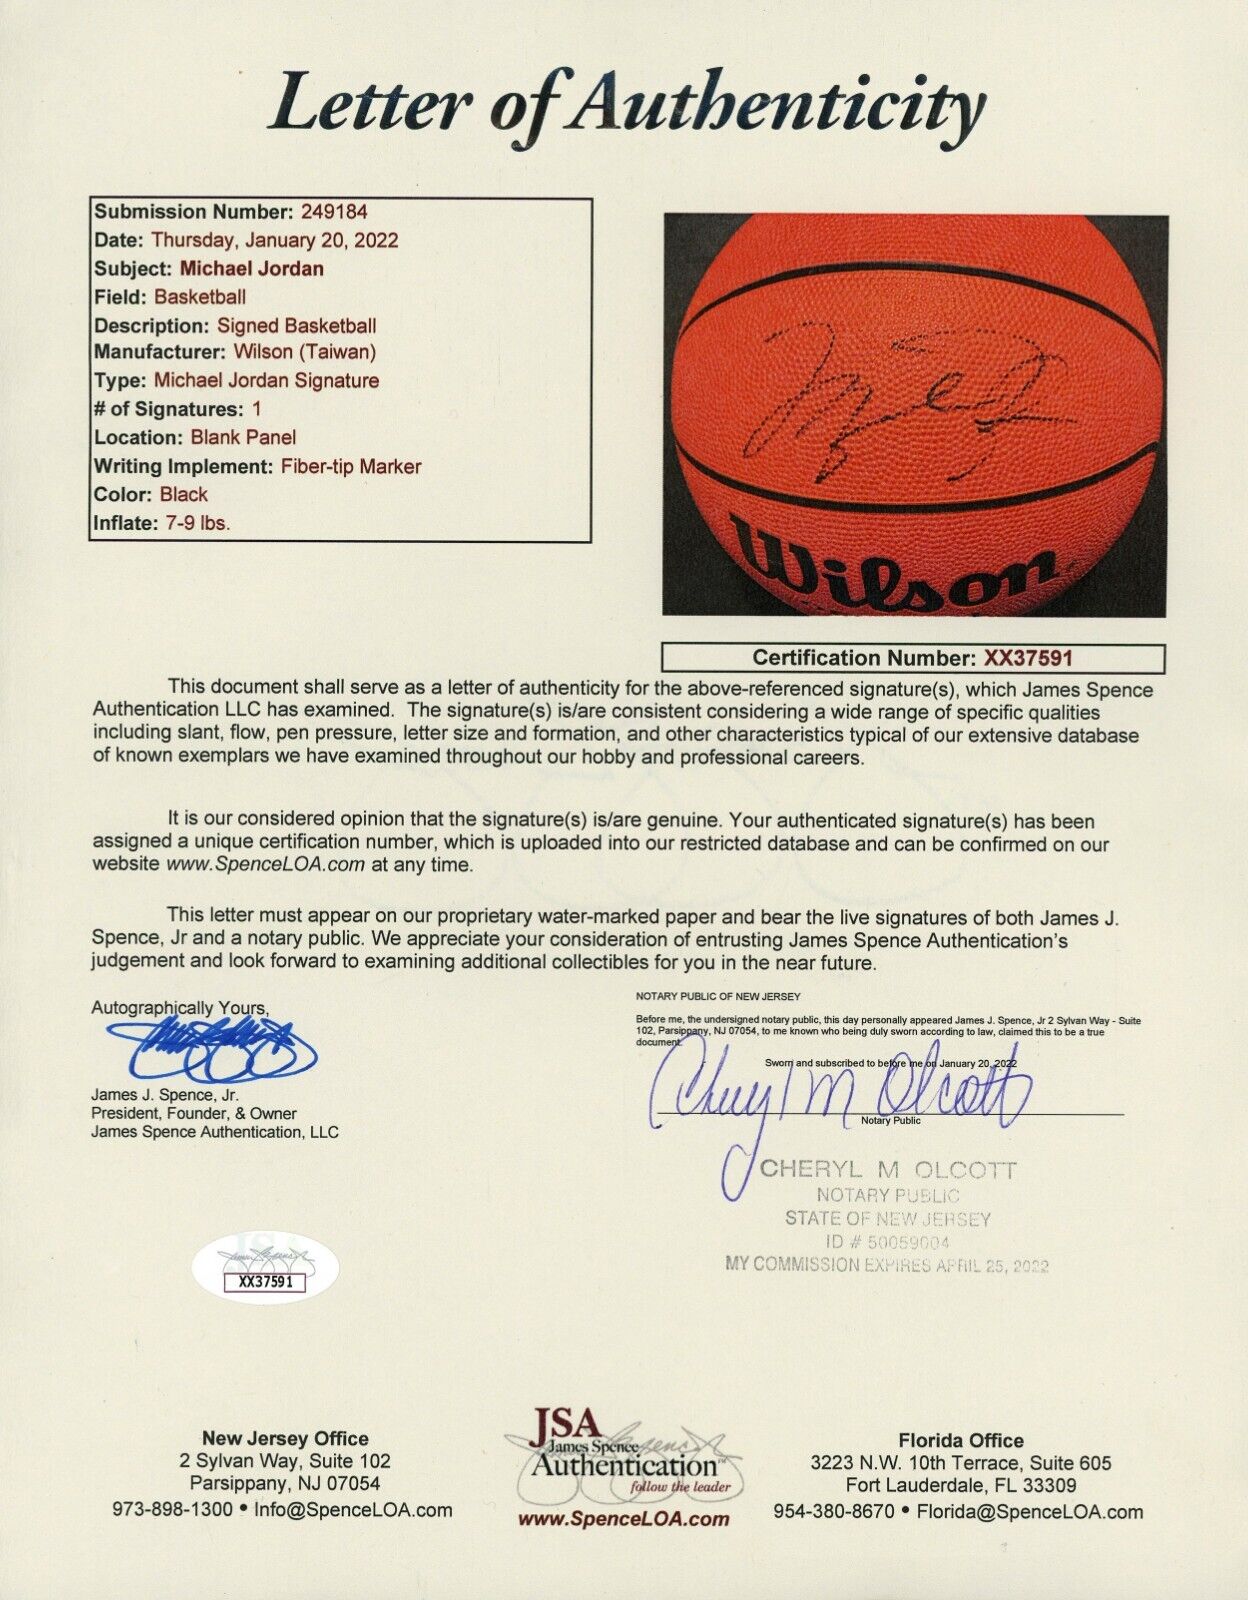 Letter of Authenticity
Submission Number: 249184
Date: Thursday, January 20, 2022
Subject: Michael Jordan
Field: Basketball
Description: Signed Basketball
Manufacturer: Wilson (Taiwan)
Type: Michael Jordan Signature
# of Signatures: 1
Location: Blank Panel
Writing Implement: Fiber-tip Marker
Color: Black
Inflate: 7-9 lbs.
Wilson
Certification Number: XX37591
This document shall serve as a letter of authenticity for the above-referenced signature(s), which James Spence
Authentication LLC has examined. The signature(s) is/are consistent considering a wide range of specific qualities
including slant, flow, pen pressure, letter size and formation, and other characteristics typical of our extensive database
of known exemplars we have examined throughout our hobby and professional careers.
It is our considered opinion that the signature(s) is/are genuine. Your authenticated signature(s) has been
assigned a unique certification number, which is uploaded into our restricted database and can be confirmed on our
website www.SpenceLOA.com at any time.
This letter must appear on our proprietary water-marked paper and bear the live signatures of both James J.
Spence, Jr and a notary public. We appreciate your consideration of entrusting James Spence Authentication's
judgement and look forward to examining additional collectibles for you in the near future.
Autographically Yours,
James J. Spence, Jr.
President, Founder, & Owner
James Spence Authentication, LLC
NOTARY PUBLIC OF NEW JERSEY
Before me, the undersigned notary public, this day personally appeared James J. Spence, Jr 2 Sylvan Way - Suite
102, Parsippany, NJ 07054, to me known who being duly sworn according to law, claimed this to be a true
document.
Sworn and subscribed to before me on January 20, 2022
Cheryl M Olcott
Notary Public
CHERYL M OLCOTT
NOTARY PUBLIC
STATE OF NEW JERSEY
ID # 50059004
MY COMMISSION EXPIRES APRIL 25, 2022
JSA
XX37591
New Jersey Office
2 Sylvan Way, Suite 102
Parsippany, NJ 07054
973-898-1300 • Info@SpenceLOA.com
JSA
James Spence
Authentication™
follow the leader
www.SpenceLOA.com
Florida Office
3223 N.W. 10th Terrace, Suite 605
Fort Lauderdale, FL 33309
954-380-8670 • Florida@SpenceLOA.com